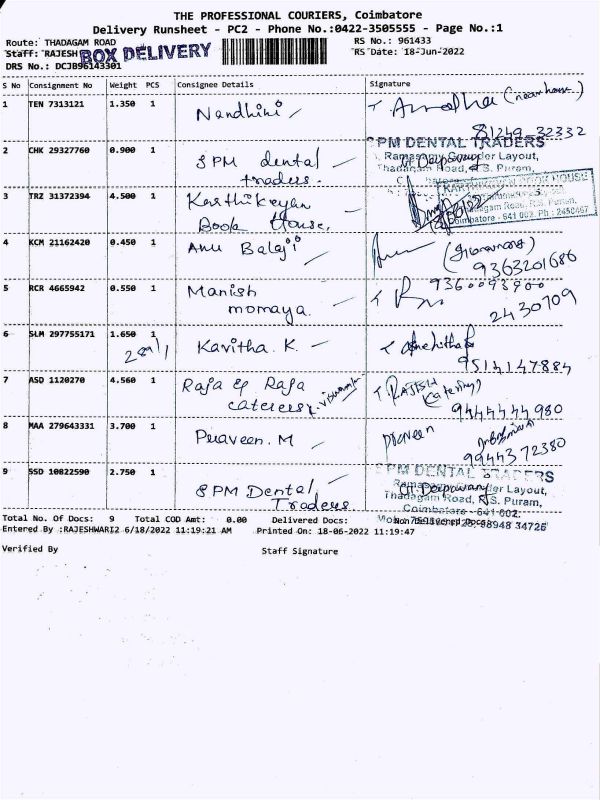 THE PROFESSIONAL COURIERS, Coimbatore
Delivery Runsheet - PC2 - Phone No.:0422-3505555 - Page No.:1
Route: THADAGAM ROAD
RS No.: 961433
Staff: RAJESH
BOX DELIVERY
RS Date: 18-Jun-2022
DRS No.: DCJB96143301
S No Consignment No Weight PCS Consignee Details Signature
1 TEN 7313121 1.350 1 Nandhini
(near house)
81249-32332
2 CHK 29327760 0.900 1 SPM dental
traders.
SPM DENTAL TRADERS
Ramasamy Gounder Layout,
Thadagam Road, R.S. Puram,
3 TRZ 31372394 4.500 1 Karthikeyan
Book House.
KARTHIKEYAN BOOK HOUSE
Thadagam Road, R.S. Puram,
Coimbatore - 641 002. Ph : 2450467
4 KCM 21162420 0.450 1 Anu Balaji
9363201686
5 RCR 4665942 0.550 1 Manish
momaya.
9360093900
2430709
6 SLM 297755171 1.650 1 Kavitha. K.
9514147884
7 ASD 1120270 4.560 1 Raja & Raja
caterers
T. RAJESH
Katering
9444444980
8 MAA 279643331 3.700 1 Praveen. M
praveen
9944372380
9 SSD 10822590 2.750 1 SPM Dental
Traders
SPM DENTAL TRADERS
Ramasamy Gounder Layout,
Thadagam Road, R.S. Puram,
Coimbatore - 641 002.
Total No. Of Docs: 9 Total COD Amt: 0.00 Delivered Docs: Non Delivered Docs:
98948 34726
Entered By :RAJESHWARI2 6/18/2022 11:19:21 AM Printed On: 18-06-2022 11:19:47
Verified By Staff Signature